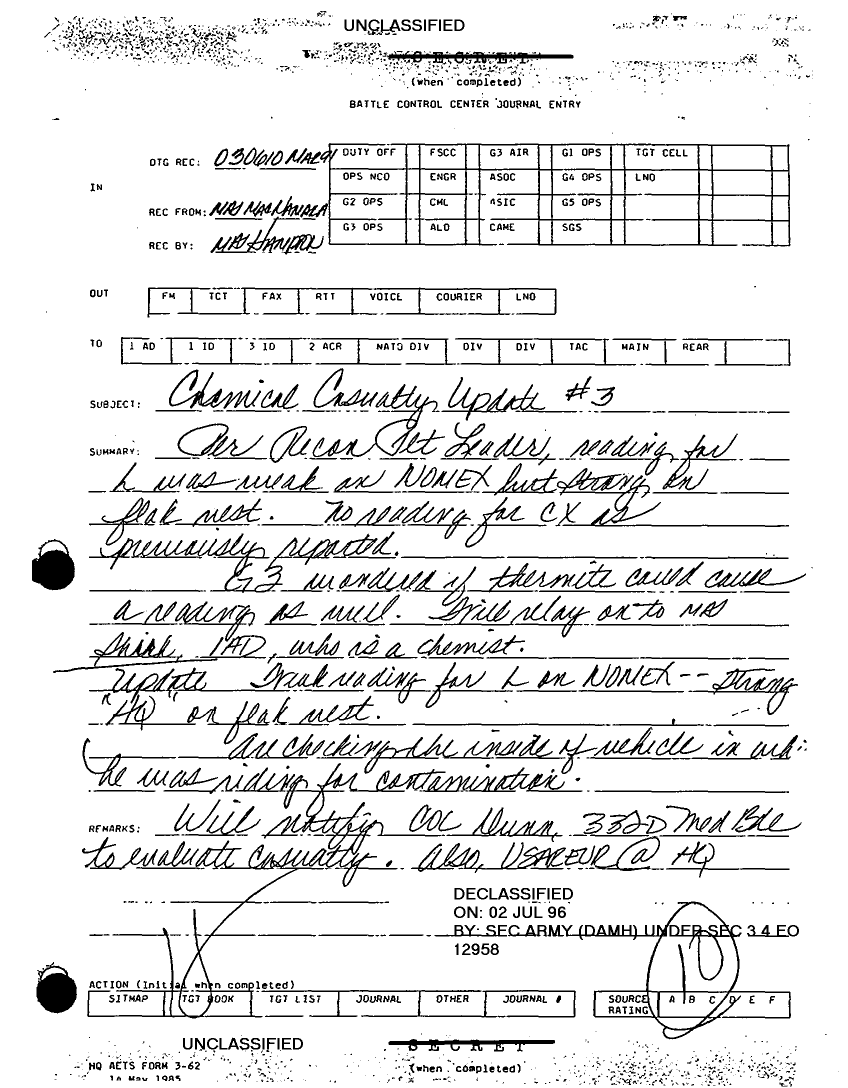 UNCLASSIFIED
S E C R E T
(when completed)
BATTLE CONTROL CENTER JOURNAL ENTRY
IN
DTG REC: 030610 MAR91
REC FROM: MAJ MACNAMARA
REC BY: MAJ HAMPTON
DUTY OFF FSCC G3 AIR G1 OPS TGT CELL
OPS NCO ENGR ASOC G4 OPS LNO
G2 OPS CML ASIC G5 OPS
G3 OPS ALO CAME SGS
OUT FM TCT FAX RTT VOICE COURIER LNO
TO 1 AD 1 ID 3 ID 2 ACR NATO DIV DIV DIV TAC MAIN REAR
SUBJECT: Chemical Casualty Update #3
SUMMARY: Per Recon Plt Leader, reading for
L was weak on NOMEX but strong on
flak vest. No reading for CX as
previously reported.
G3 wondered if thermite could cause
a reading as well. Will relay on to MAJ
1AD, who is a chemist.
Update Weak reading for L on NOMEX -- strong
"HQ" on flak vest.
Are checking the inside of vehicle in whi
he was riding for contamination.
REMARKS: Will notify COL Dunn, 332D Med Bde
to evaluate casualty. Also, USAREUR @ HQ
DECLASSIFIED
ON: 02 JUL 96
BY: SEC ARMY (DAMH) UNDER SEC 3 4 EO
12958
18
10
ACTION (Initial when completed)
SITMAP TGT BOOK TGT LIST JOURNAL OTHER JOURNAL #
SOURCE RATING A B C D E F
UNCLASSIFIED
S E C R E T
(when completed)
HQ AETS FORM 3-62
1A May 1985